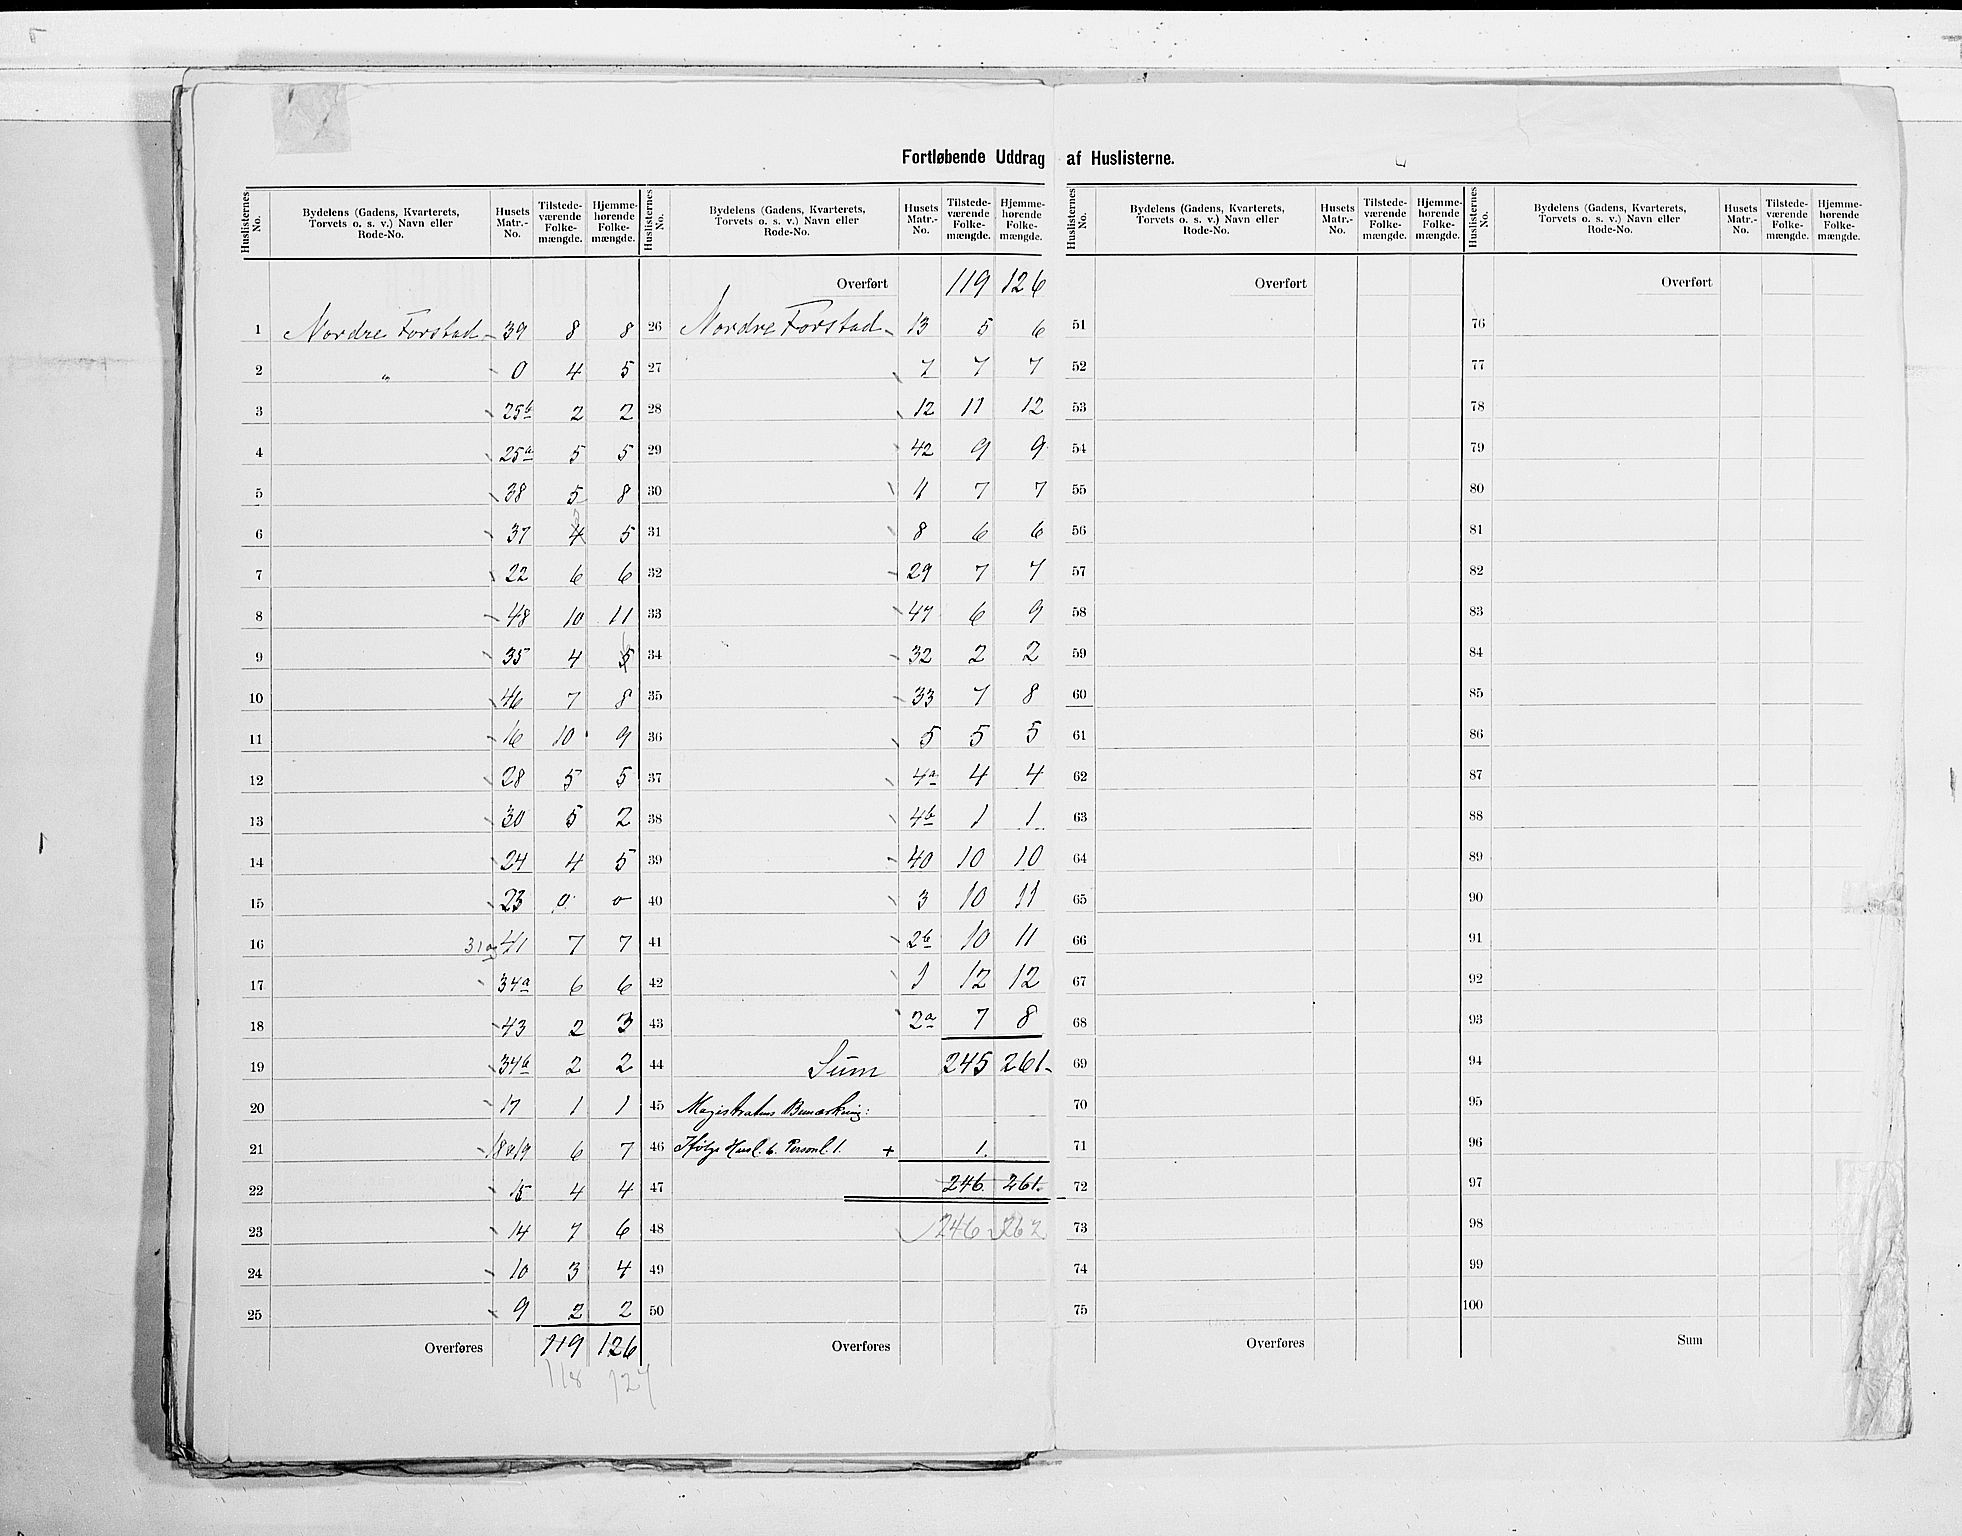 Fortløbende Uddrag af Huslisterne.
Huslisternes No. | Bydelens (Gadens, Kvarterets, Torvets o. s. v.) Navn eller Rode-No. | Husets Matr.-No. | Tilstedeværende Folkemængde. | Hjemmehørende Folkemængde.
1 Nordre Forstad 39 8 8
2 " 0 4 5
3 25b 2 2
4 25a 5 5
5 38 5 8
6 37 4 5
7 22 6 6
8 48 10 11
9 35 4 5
10 46 7 8
11 16 10 9
12 28 5 5
13 30 5 2
14 24 4 5
15 23 0 0
16 31a 41 7 7
17 34a 6 6
18 43 2 3
19 34b 2 2
20 17 1 1
21 18 o 19 6 7
22 15 4 4
23 14 7 6
24 10 3 4
25 9 2 2
Overføres 119 126
118 127
Huslisternes No. | Bydelens (Gadens, Kvarterets, Torvets o. s. v.) Navn eller Rode-No. | Husets Matr.-No. | Tilstedeværende Folkemængde. | Hjemmehørende Folkemængde.
Overført 119 126
26 Nordre Forstad 13 5 6
27 7 7 7
28 12 11 12
29 42 9 9
30 11 7 7
31 8 6 6
32 29 7 7
33 47 6 9
34 32 2 2
35 33 7 8
36 5 5 5
37 4a 4 4
38 4b 1 1
39 40 10 10
40 3 10 11
41 2b 10 11
42 1 12 12
43 2a 7 8
44 Sum 245 261
45 Magistratens Bemærkning:
46 Ifølge Husl. 6. Personl. 1. + 1.
47 246 261.
48 246 262
49
50
Overføres
Huslisternes No. | Bydelens (Gadens, Kvarterets, Torvets o. s. v.) Navn eller Rode-No. | Husets Matr.-No. | Tilstedeværende Folkemængde. | Hjemmehørende Folkemængde.
Overført
51
52
53
54
55
56
57
58
59
60
61
62
63
64
65
66
67
68
69
70
71
72
73
74
75
Overføres
Huslisternes No. | Bydelens (Gadens, Kvarterets, Torvets o. s. v.) Navn eller Rode-No. | Husets Matr.-No. | Tilstedeværende Folkemængde. | Hjemmehørende Folkemængde.
Overført
76
77
78
79
80
81
82
83
84
85
86
87
88
89
90
91
92
93
94
95
96
97
98
99
100
Sum